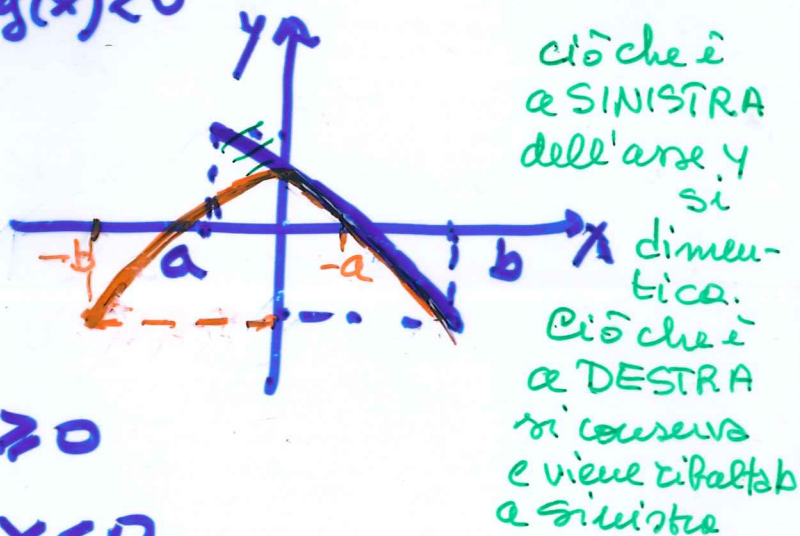 g(x)<0
y
ciò che è
a SINISTRA
dell'asse y
si
x
dimen-
-b
a
-a
b
tica.
Ciò che è
a DESTRA
≥0
si conserva
e viene ribaltato
x<0
a sinistra